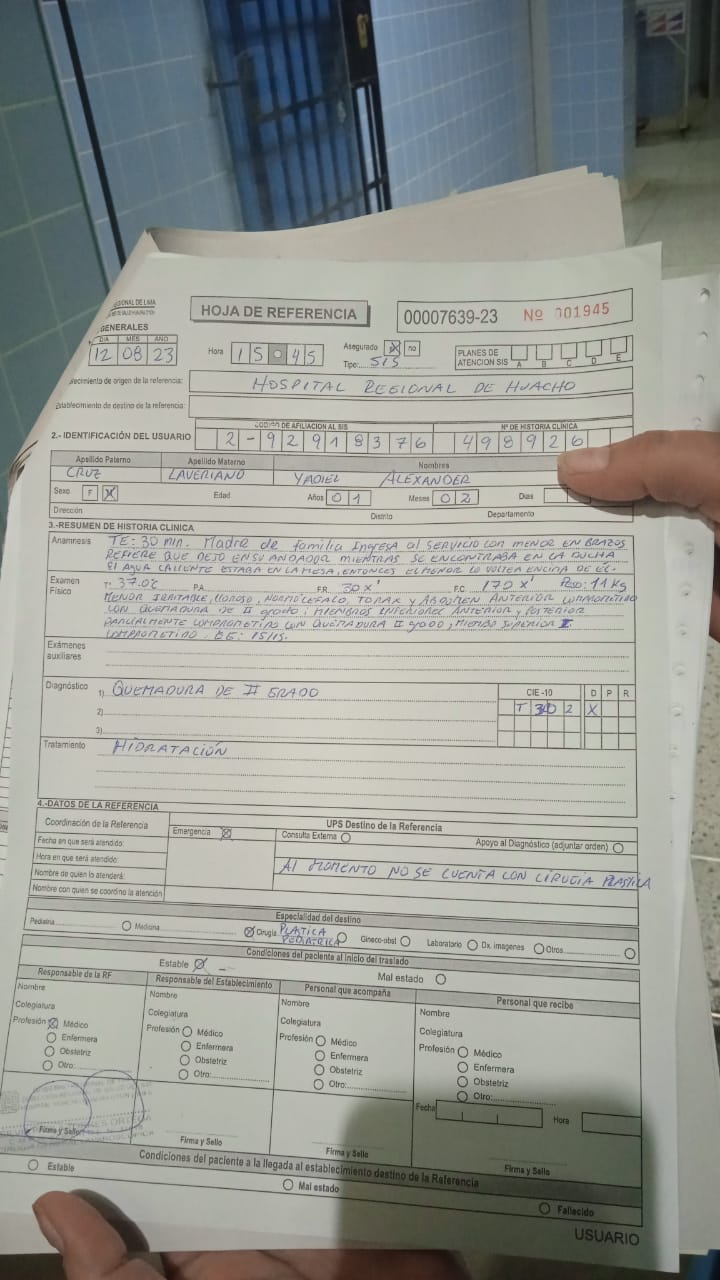 HOJA DE REFERENCIA
00007639-23 Nº 001945
GENERALES
DIA MES AÑO
12 08 23
Hora 15 45
Asegurado no
Tipo: SIS
PLANES DE ATENCION SIS A B C D E
Establecimiento de destino de la referencia:
HOSPITAL REGIONAL DE HUACHO
2.- IDENTIFICACIÓN DEL USUARIO
CODIGO DE AFILIACION AL SIS Nº DE HISTORIA CLÍNICA
2-92918376 498926
Apellido Paterno Apellido Materno Nombres
CRUZ LAVERIANO YADIEL ALEXANDER
Sexo F X Edad Años 01 Meses 02 Días
Dirección Distrito Departamento
3.-RESUMEN DE HISTORIA CLINICA
Anamnesis TE: 30 min. Madre de familia Ingresa al SERVICIO CON MENOR EN BRAZOS
REFIERE QUE DEJO EN SU ANDADOR MIENTRAS SE ENCONTRABA EN LA DUCHA
El AGUA CALIENTE ESTABA EN LA MESA, ENTONCES EL MENOR LO VOLTEA ENCIMA DE EL.
Examen Físico Tº 37.0ºC P.A. F.R. 30 X' F.C. 170 X' Peso: 11 Kg
MENOR IRRITABLE, LLOROSO, NORMOCEFALO, TORAX Y ABDOMEN ANTERIOR COMPROMETIDO
CON QUEMADURA DE II grado; MIEMBROS INFERIORES ANTERIOR Y POSTERIOR
PARCIALMENTE COMPROMETIDO CON QUEMADURA II grado, MIEMBRO SUPERIOR I.
COMPROMETIDO. 15/15.
Exámenes auxiliares
Diagnóstico 1) QUEMADURA DE II GRADO
CIE -10 D P R
T 302 X
2)
3)
Tratamiento HIDRATACIÓN
4.-DATOS DE LA REFERENCIA
Coordinación de la Referencia
UPS Destino de la Referencia
Emergencia
Consulta Externa
Apoyo al Diagnóstico (adjuntar orden)
Fecha en que será atendido:
Hora en que será atendido:
Nombre de quien lo atenderá:
Nombre con quien se coordino la atención
Al MOMENTO NO SE CUENTA CON CIRUGIA PLASTICA
Especialidad del destino
Pediatria Medicina Cirugia PLATICA PEDIATRICA Gineco-obst Laboratorio Dx. imagenes Otros
Condiciones del paciente al inicio del traslado
Estable Mal estado
Responsable de la RF Responsable del Establecimiento Personal que acompaña Personal que recibe
Nombre Nombre Nombre Nombre
Colegiatura Colegiatura Colegiatura Colegiatura
Profesión Médico Profesión Médico Profesión Médico Profesión Médico
Enfermera Enfermera Enfermera Enfermera
Obstetriz Obstetriz Obstetriz Obstetriz
Otro: Otro: Otro: Otro:
Fecha Hora
Firma y Sello Firma y Sello Firma y Sello Firma y Sello
Condiciones del paciente a la llegada al establecimiento destino de la Referencia
Estable Mal estado Fallecido
USUARIO